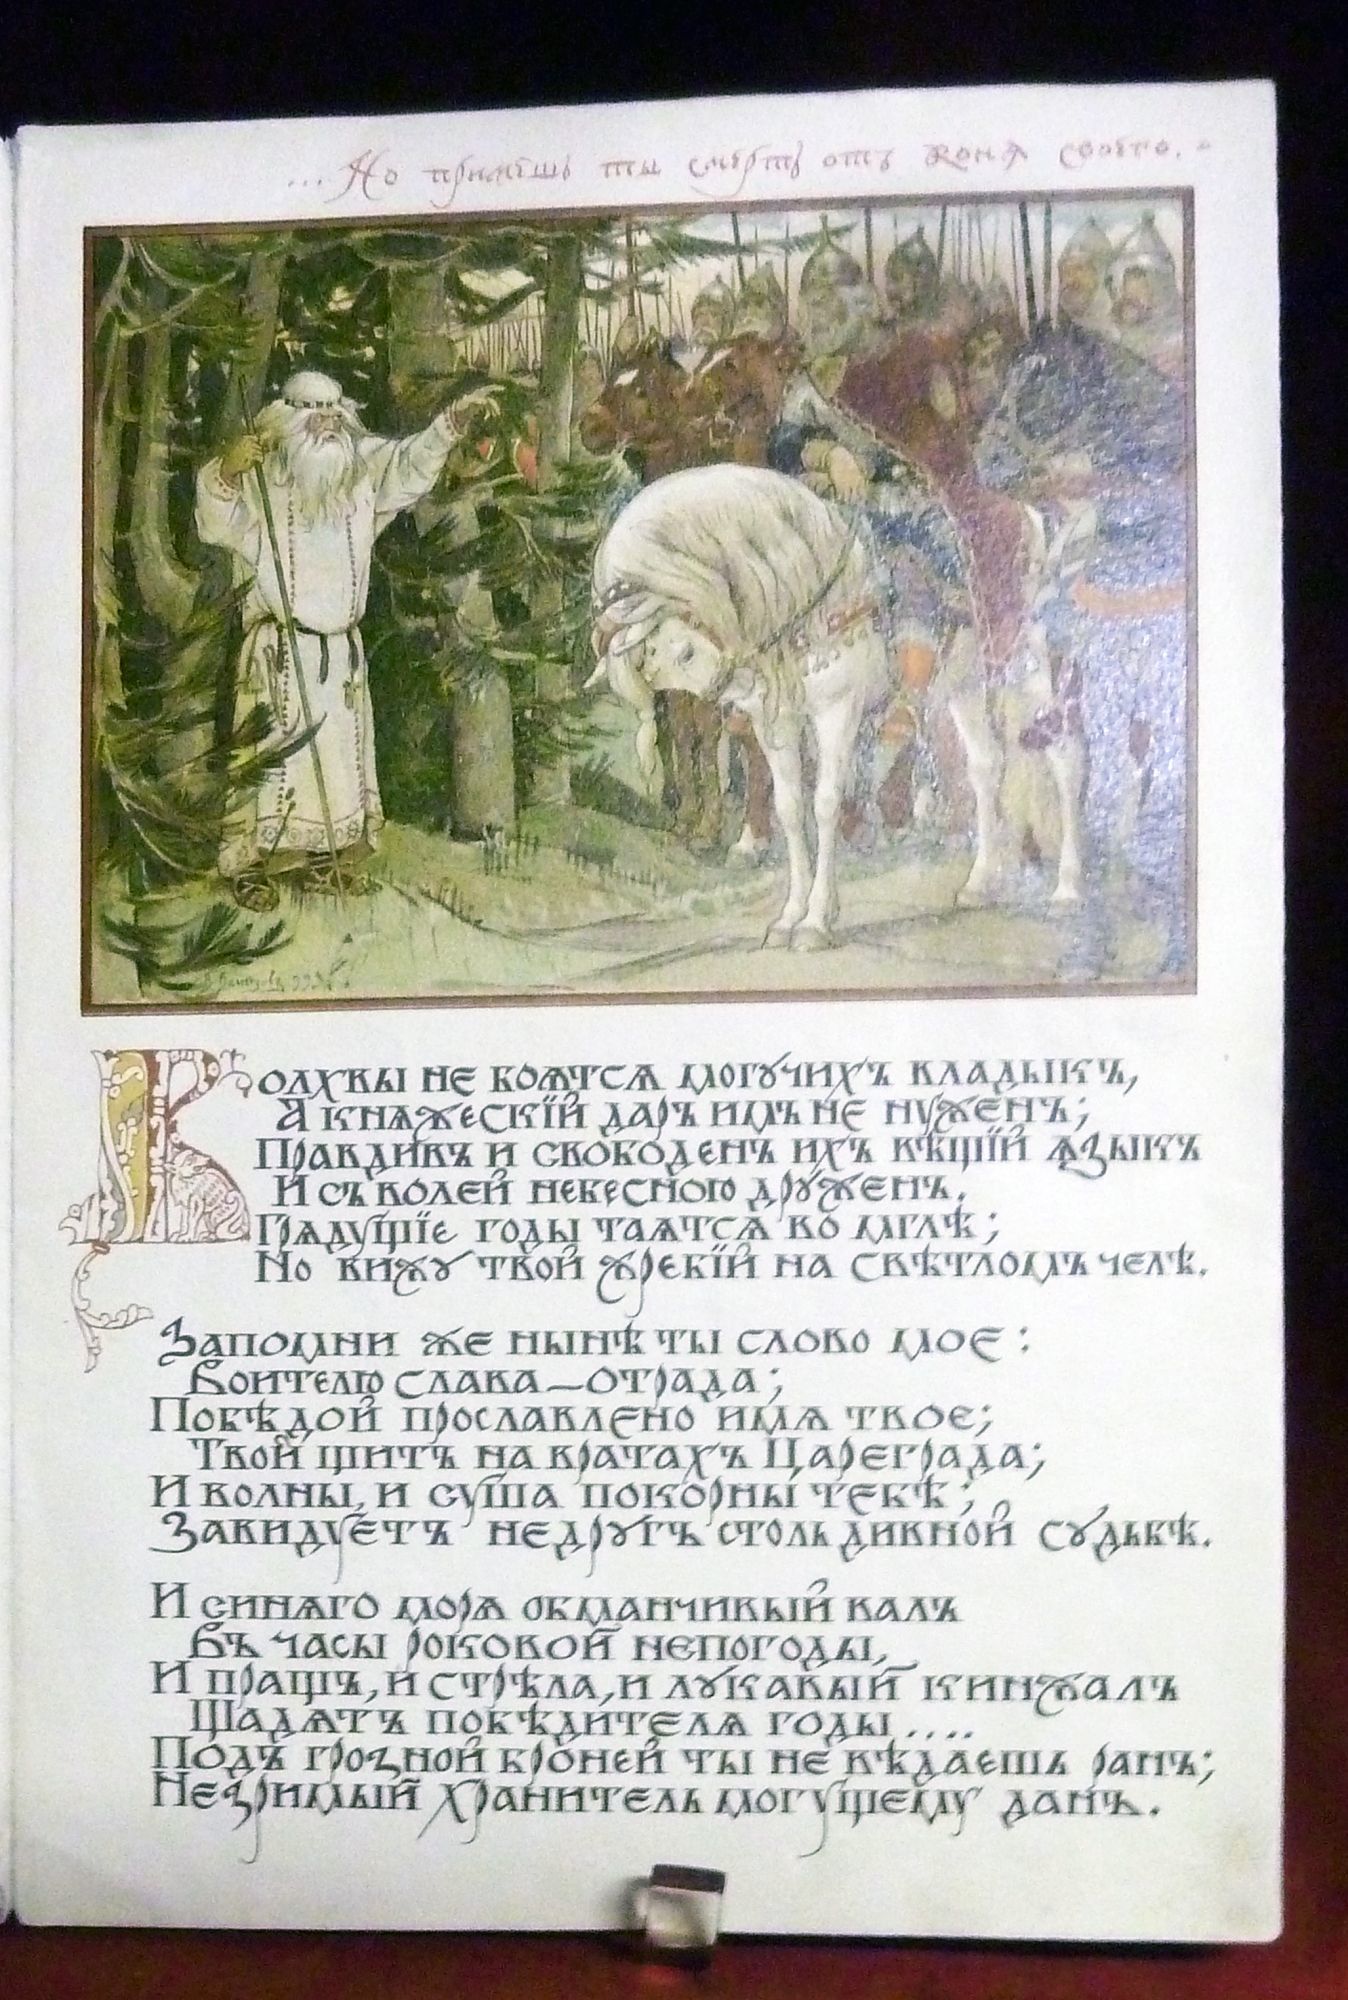 ... Но примешь ты смерть отъ коня своего.
Волхвы не боятся могучихъ владыкъ,
А княжескій даръ имъ не нуженъ;
Правдивъ и свободенъ ихъ вѣщій языкъ
И съ волей небесного друженъ.
Грядущіе годы таятся во мглѣ;
Но вижу твой жребій на свѣтломъ челѣ.
Запомни же нынѣ ты слово мое:
Воителю слава—отрада;
Побѣдой прославлено имя твое;
Твой щитъ на вратахъ Цареграда;
И волны, и суша покорны тебѣ;
Завидуетъ недругъ столь дивной судьбѣ.
И синяго моря обманчивый валъ
Въ часы роковой непогоды,
И пращъ, и стрѣла, и лукавый кинжалъ
Щадятъ побѣдителя годы....
Подъ грозной броней ты не вѣдаешь ранъ;
Незримый хранитель могущему данъ.